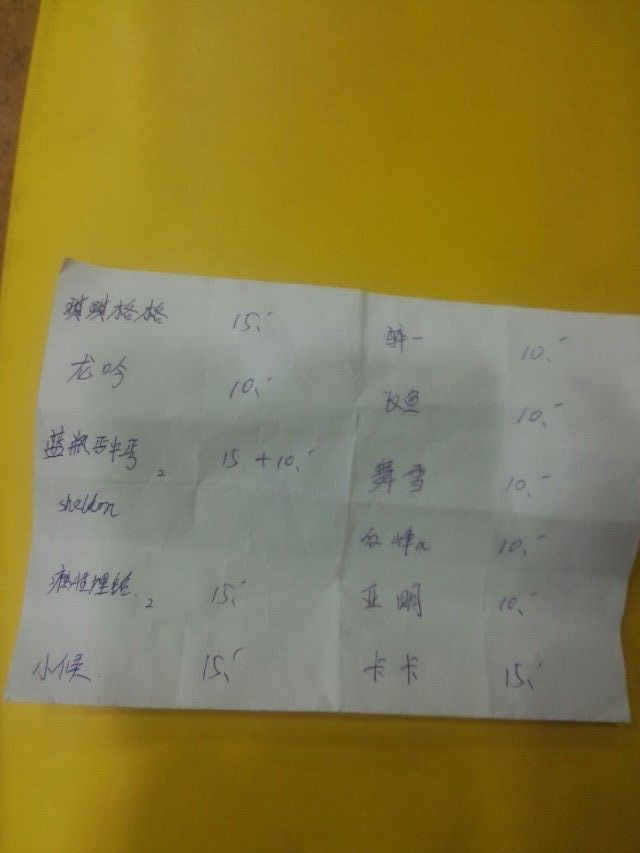 琪琪格格 15.-
龙吟 10.-
蓝瓶 2 15.+10.-
sheldon
理 2 15.-
小候. 15.-
醉一 10.-
飞鱼 10.-
舞雪 10.-
峰a 10.-
亚明 10.-
卡卡 15.-